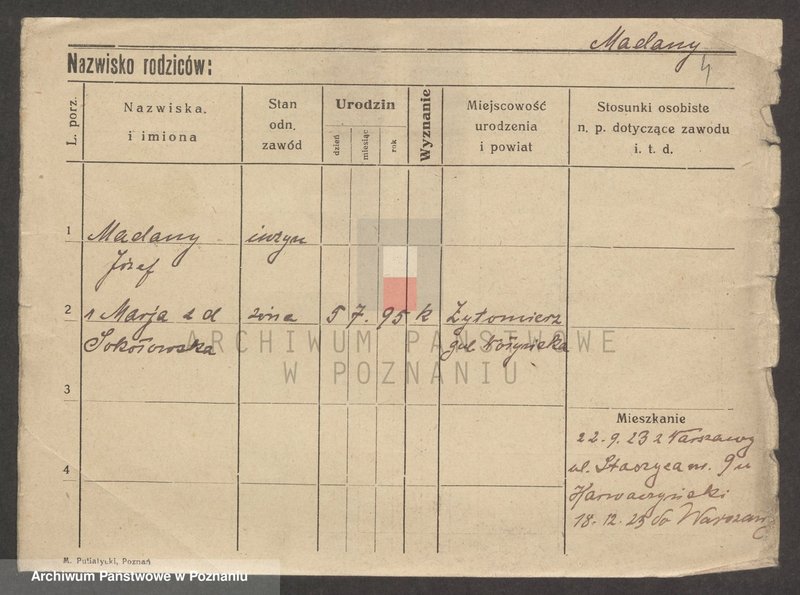 Madany
Nazwisko rodziców:
L. porz.
Nazwiska.
i imiona
Stan
odn.
zawód
Urodzin
dzień
miesiąc
rok
Wyznanie
Miejscowość
urodzenia
i powiat
Stosunki osobiste
n. p. dotyczące zawodu
i. t. d.
1 Madany inżyn
Józef
2 Marja z d żona 5 7. 95 k Żytomierz
Sokołowska gub Wołyńska
ARCHIWUM PAŃSTWOWE
W POZNANIU
3
Mieszkanie
22. 9. 23 z Warszawy
ul. Staszyca 9 u
4
18. 12. 25 do Warszawy
M. Putiatycki, Poznań
Archiwum Państwowe w Poznaniu